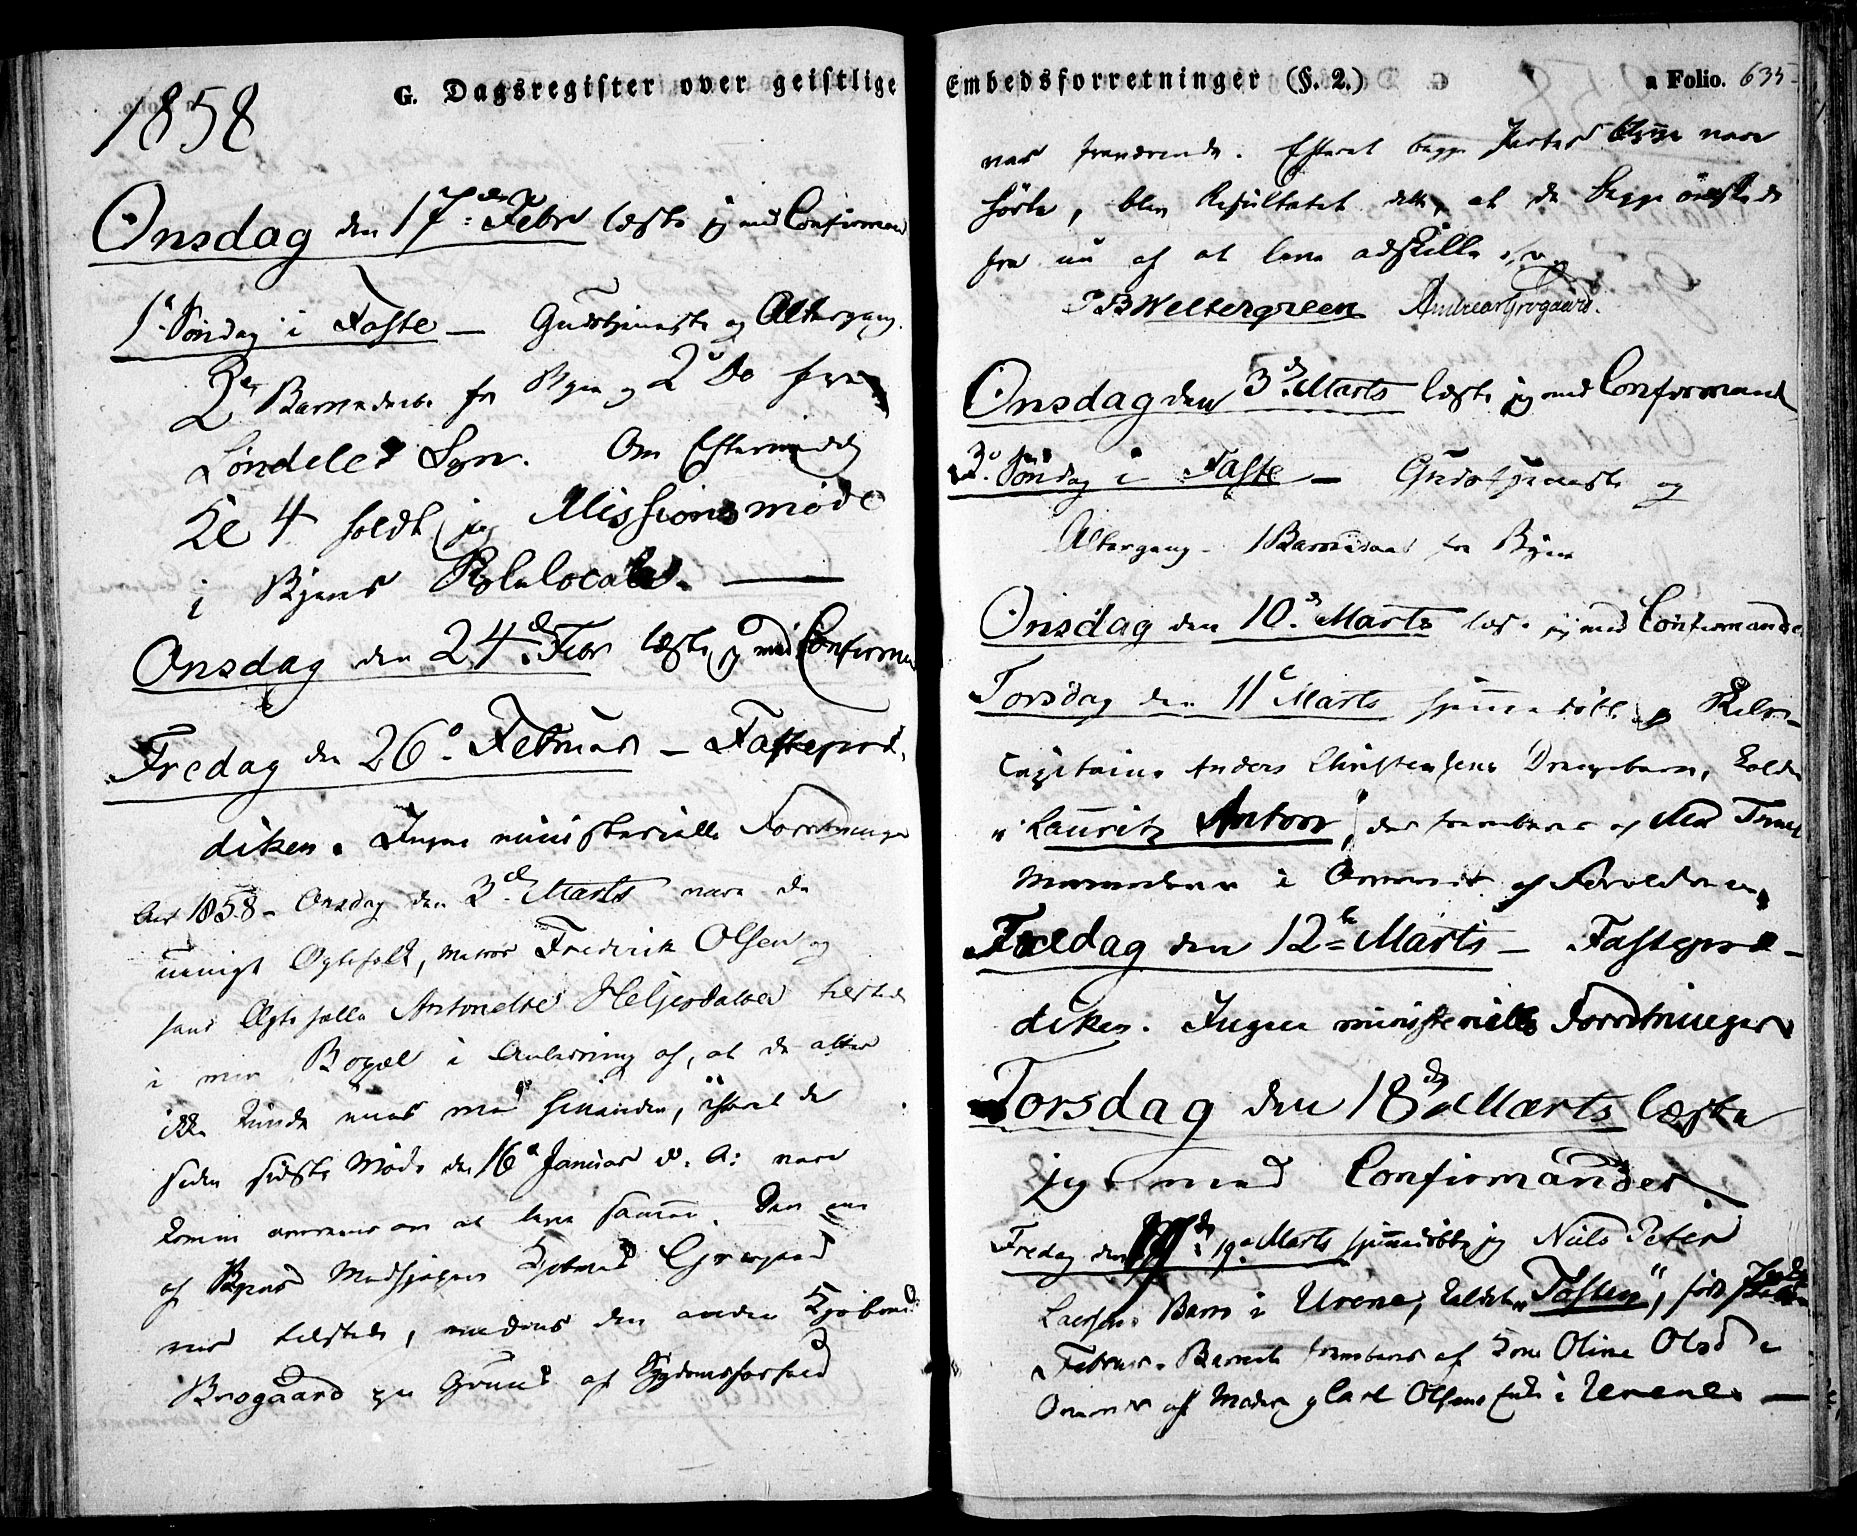 G. Dagsregister over geistlige Embedsforretninger (§. 2.) a Folio. 635
1858
Onsdag den 17de Febr læste jeg med Confirmand
1e Søndag i Faste — Gudstjeneste og Altergang.
2de Barnedaab fra Byen og 2 Do fra
Søndeled Sogn. Om Eftermiddag
Kl 4 holdt jeg Missionsmöde
i Byens Skolelocale. —
Onsdag den 24de Febr læste jeg med Confirman
Fredag den 26de Februar — Fastepræ-
diken. Ingen ministerielle Forretninger
Aar 1858 - Onsdag den 3de Marts vare de
uenige Ægtefolk, Matros Frederik Olsen og
hans Ægtefælle Antonette Heljesdatter tilstede
i min Bopæl i Anledning af, at de atter
ikke kunde enes med hinanden, efterat de
siden sidste Møde den 16de Januar d. A: vare
komne overens om at leve sammen. Den ene
af Byens Medhjælpere Kjøbmand Grøgaard
var tilstede, medens den anden Kjøbmd
Brogaard paa Grund af Sygdomsforfald
var fraværende. Efterat begge Parter vare
hørte, blev Resultatet dette, at de begge ønskede
fra nu af at leve adskilte
P B Weltergreen Andreas Grøgaard.
Onsdag den 3de Marts læste jeg med Confirmand
3de Søndag i Faste — Gudstjeneste og
Altergang - 1 Barnedaab fra Byen
Onsdag den 10de Marts læste jeg med Confirmander
Torsdag den 11e Marts hjemmedøbte jeg Skibs-
capitaine Anders Christensens Drengebarn, kaldet
"Lauritz Anton", der frembares af
i Overvær af Forældrene,
Fredag den 12te Marts — Fastepræ-
diken. Ingen ministerielle Forretninger
Torsdag den 18de Marts læste
jeg med Confirmander.
Fredag den 19de Marts hjemmedøbte jeg Niels Peter
Larsens Barn i Urene, kaldet "Tosten", født
Februar. Barnet frembares af Kone Oline Olsd i
Overvær af Moderen og Carl Olsen i Urene —